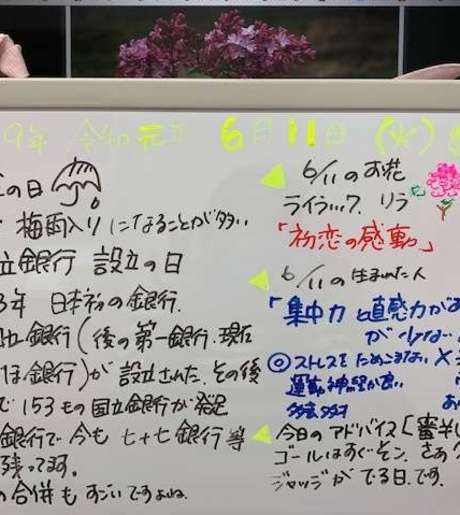 9年 令和元年 6月11日 (火)
の日
梅雨入りになることが多い
立銀行 設立の日
3年 日本初の銀行.
立銀行(後の第一銀行.現在
ほ銀行)が設立された.その後
で153もの国立銀行が発足
銀行で今も七十七銀行等
残ってます。
の合併もすごいですよね.
6/11のお花
ライラック. リラ
「初恋の感動」
6/11の生まれた人
「集中力と直感力が
が少ない
◎ストレスをためこまない
運動神経が良い
多才
今日のアドバイス[蜜半
ゴールはすぐそこ. さあ
ジャッジがでる日です.